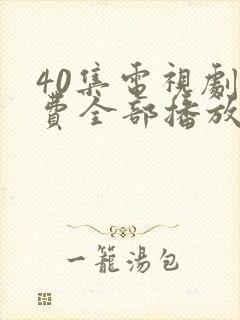 40集電視劇
費全部播放
一籠湯包